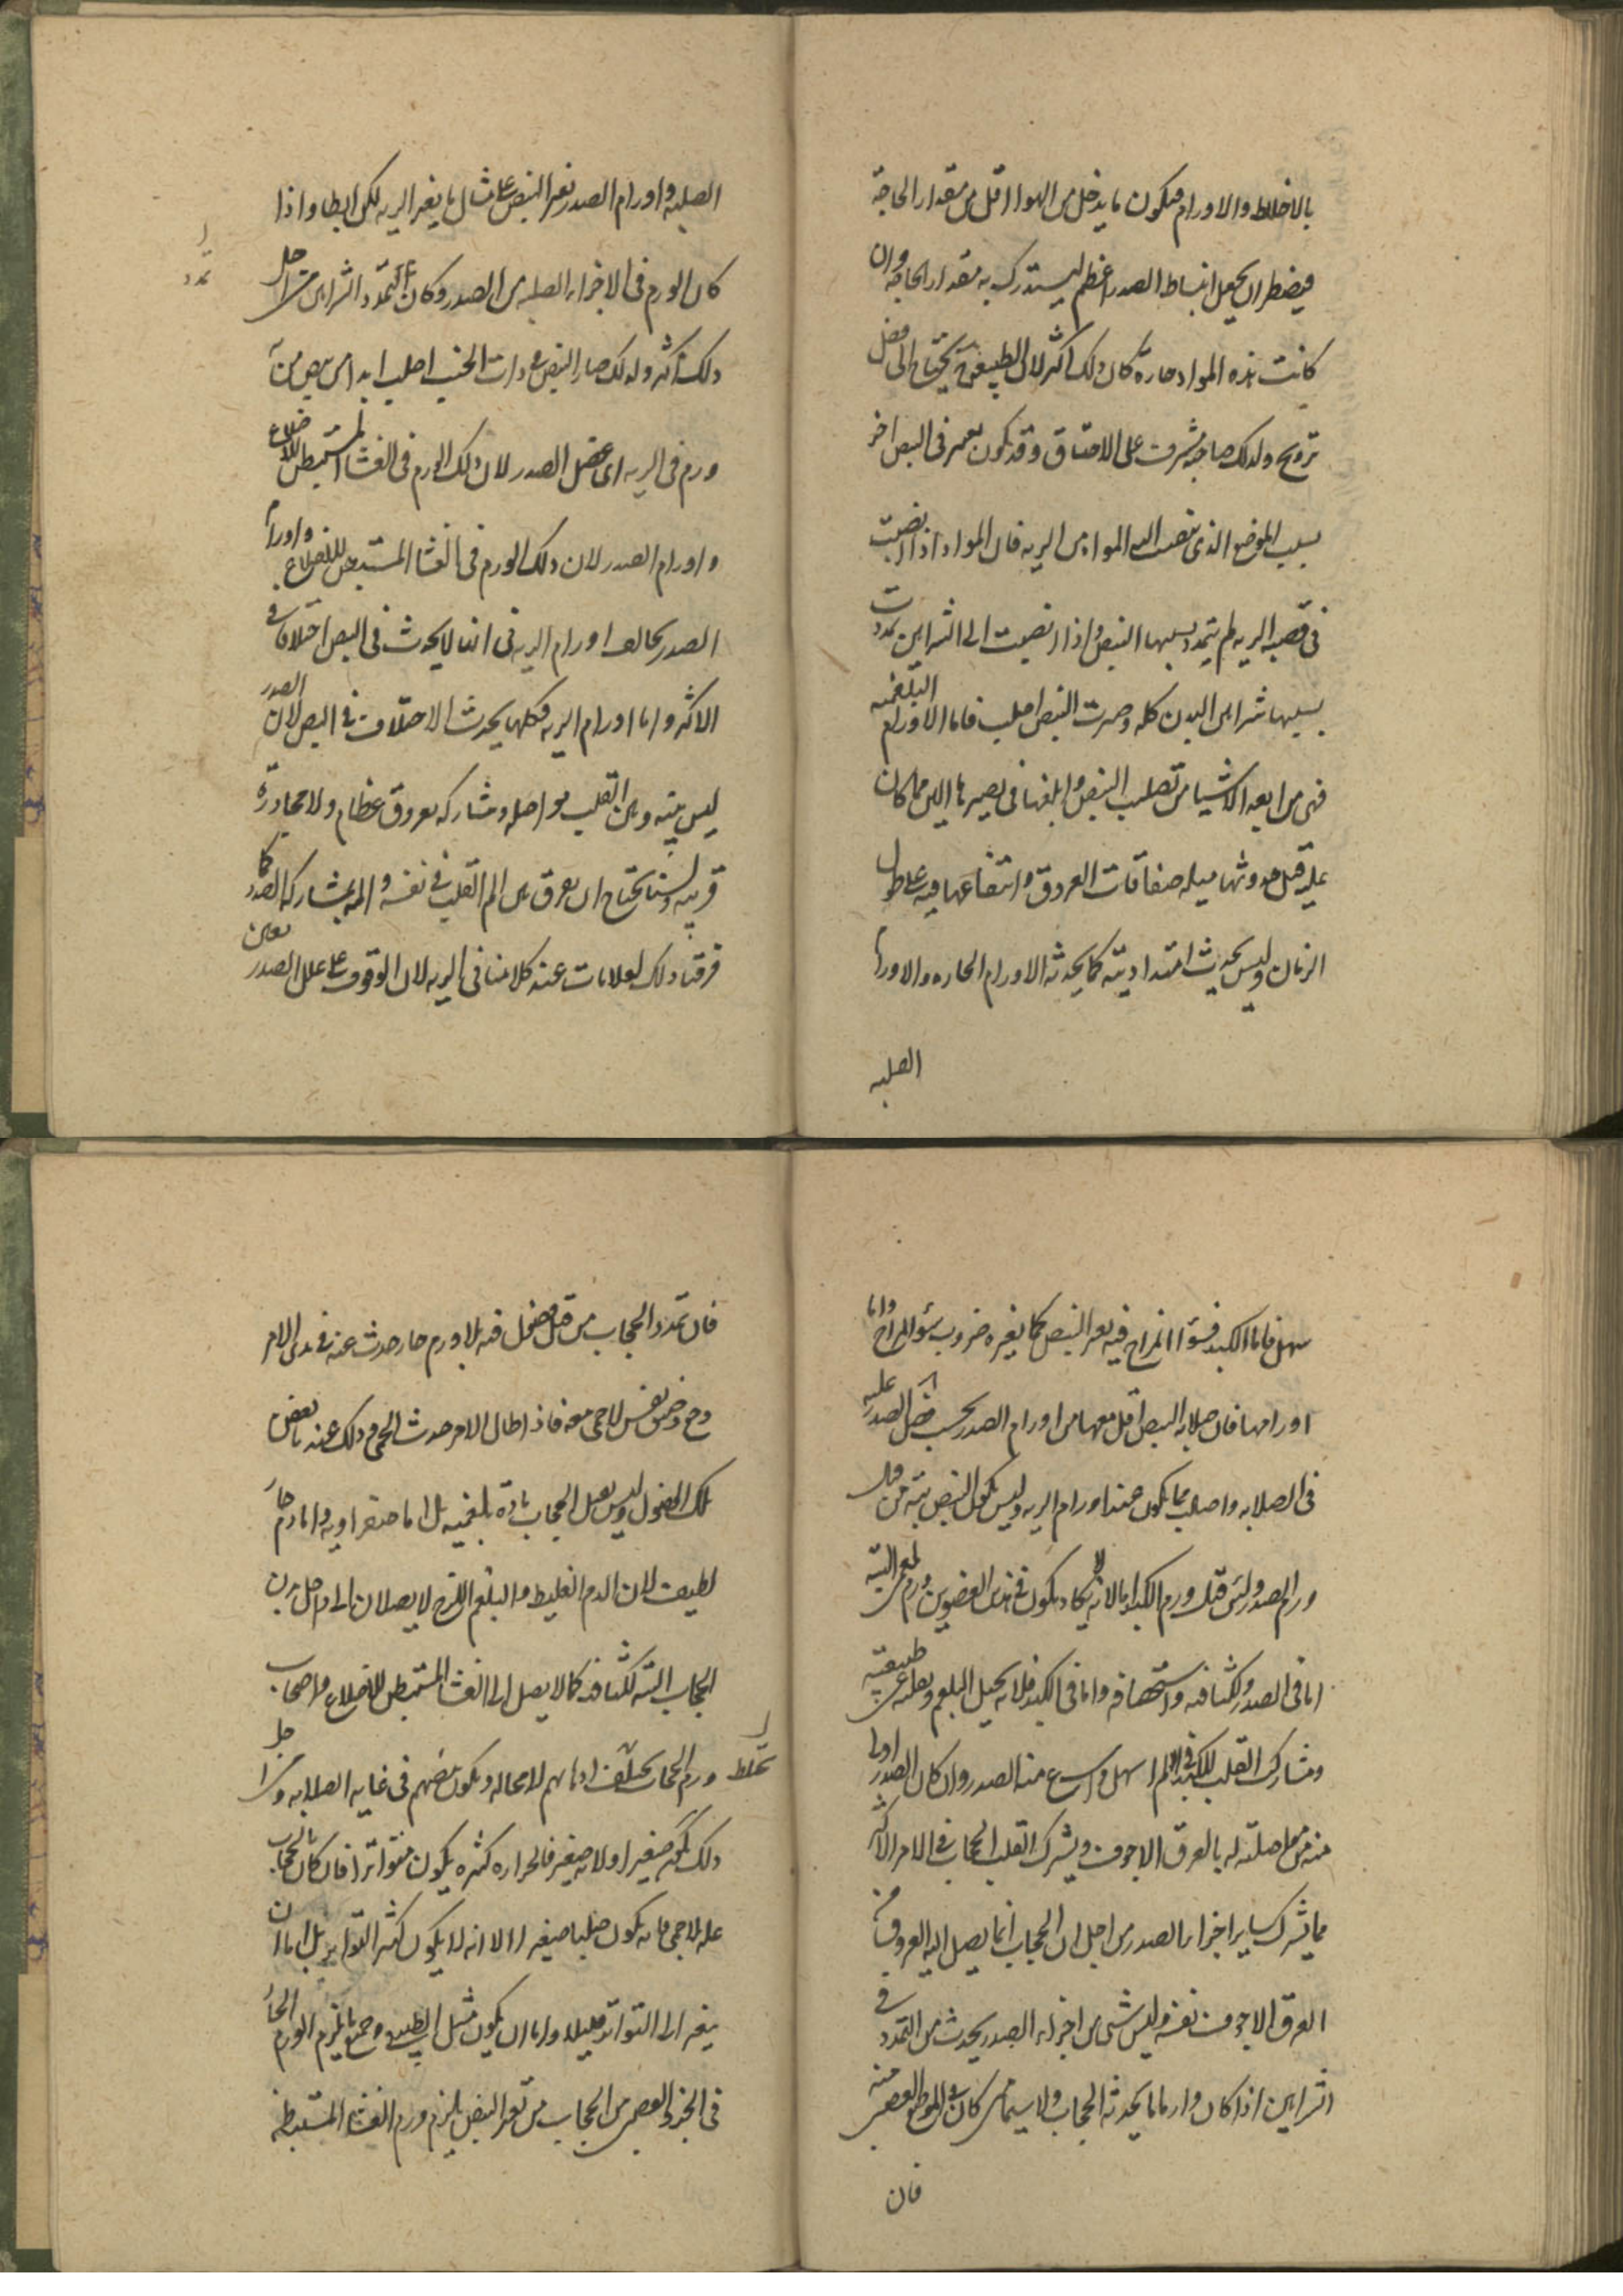 بالاخلاط والاورام فيكون ما يدخل من الهواء اقل من مقدار الحاجة
فيضطر ان يجعل انبساط الصدر اعظم ليستدرك به مقدار الحاجه وان
كانت هذه المواد حارة كان ذلك اكثر لان الطبيعة تحتاج الى فضل
ترويح ولذلك صاحبه مشرف على الاختناق وقد يكون تغير في النبض اخر
بسبب الموضع الذي تنصب اليه المواد من الريه فان المواد اذا انصبت
في قصبه الريه لم يتمدد بسببها النبض واذا انصبت الى الشرايين تمددت
بسببها شرايين البدن كله وصيرت النبض اصلب فاما الاورام البلغميه
فهي من ابعد الاشيا من تصليب النبض وابلغها في تصييرها الين مما كان
عليه قبل حدوثها لبلة صفاقات العروق وانتقاعها فيه على طول
الزمان وليس يحدث امتدادا بتة كما يحدثه الاورام الحاره والاورام
الصلبه
الصلبه واورام الصدر تغير النبض على مثال ما يغير الريه لكن ابطا واذا
كان الورم في الاجزاء الصلبه من الصدر وكان التمدد الشرايين من اجل
تمدد
ذلك اكثر ولذلك صار النبض في ذات الجنب اصلب ابدا من نبض من به
ورم في الريه او في عضل الصدر لان ذلك الورم في الغشا المستبطن للاضلاع
واورام الصدر لان ذلك الورم في الغشا المستبطن للاضلاع واورام
الصدر تخالف اورام الريه في انها لا يحدث في النبض اختلافا في
الاكثر واما اورام الريه فكلها يحدث الاختلاف في النبض لان الصدر
ليس بينه وبين القلب مواصله ومشاركه بعروق عظام ولا مجاورة
قريبه ولسنا نحتاج ان نعرف من الم القلب في نفسه والمه بمشاركه الصدر كما
فرقنا ذلك بعلامات عند كلامنا في الريه لان الوقوف على علل الصدر بعين
سهل فاما الكبد فسؤ المزاج فيه يغير النبض كما يغيره ضروب سؤ المزاج واما
اورامها فان صلابه النبض اقل معها من اورام الصدر بحسب فضل الصدر عليه
في الصلابه واصلب مما يكون عند اورام الريه وليس يكون النبض بتة من قبل
ورم الصدر وليس قبل ورم الكبد لانه لا يكاد يكون في هذين العضوين ورم بلغمي البتة
اما في الصدر ولكثافته واستحصافه واما في الكبد فلانه يحيل البلغم ويقلبه عن طبيعته
ومشاركه القلب للكبد في الالم اسهل واسرع منه الصدر وان كان الصدر اولى
منه من مواصلته له بالعرق الاجوف ويشرك القلب الحجاب في الامر الاكثر
مما يشرك ساير اجزاء الصدر من اجل ان الحجاب انما يصل اليه العروق من
العرق الاجوف نفسه وليس شي من اجزاء الصدر يحدث من التمدد في
الشرايين اذا كان وارما ما يحدثه الحجاب ولا سيما متى كان في المواضع العصبي منه
فان
فان تمدد الحجاب من قبل فضل فيه بلا ورم حار حدث عنه في بدء الامر
وضيق نفس لا حمى معه فاذا طال الامر حدث الحمى وذلك عند تعفن
تلك الفضول وليس يصل الحجاب مادة بلغميه بل اما صفراويه واما دم حار
لطيف لان الدم الغليظ والبلغم اللزج لا يصلان الى داخل بدن
الحجاب البتة لكثافته كما لا يصل الى الغشا المستبطن للاضلاع واصحاب
ورم الحجاب يختلط اذهانهم لا محاله ويكون نبضهم في غايه الصلابه ومن اجل
تختلط
ذلك يكون صغيرا ولانه صغير فالحرارة كثيره يكون متواترا فان كان بالحجاب
عله بلا حمى فانه يكون صلبا صغيرا الا انه لا يكون كثير التواتر بل اما ان
يتغير الى التواتر قليلا واما ان يكون مثل الطبيعي وجميع ما يلزم الورم الحار
في الجزء العصبي من الحجاب من تغير النبض يلزم ورم الغشاء المستبطن